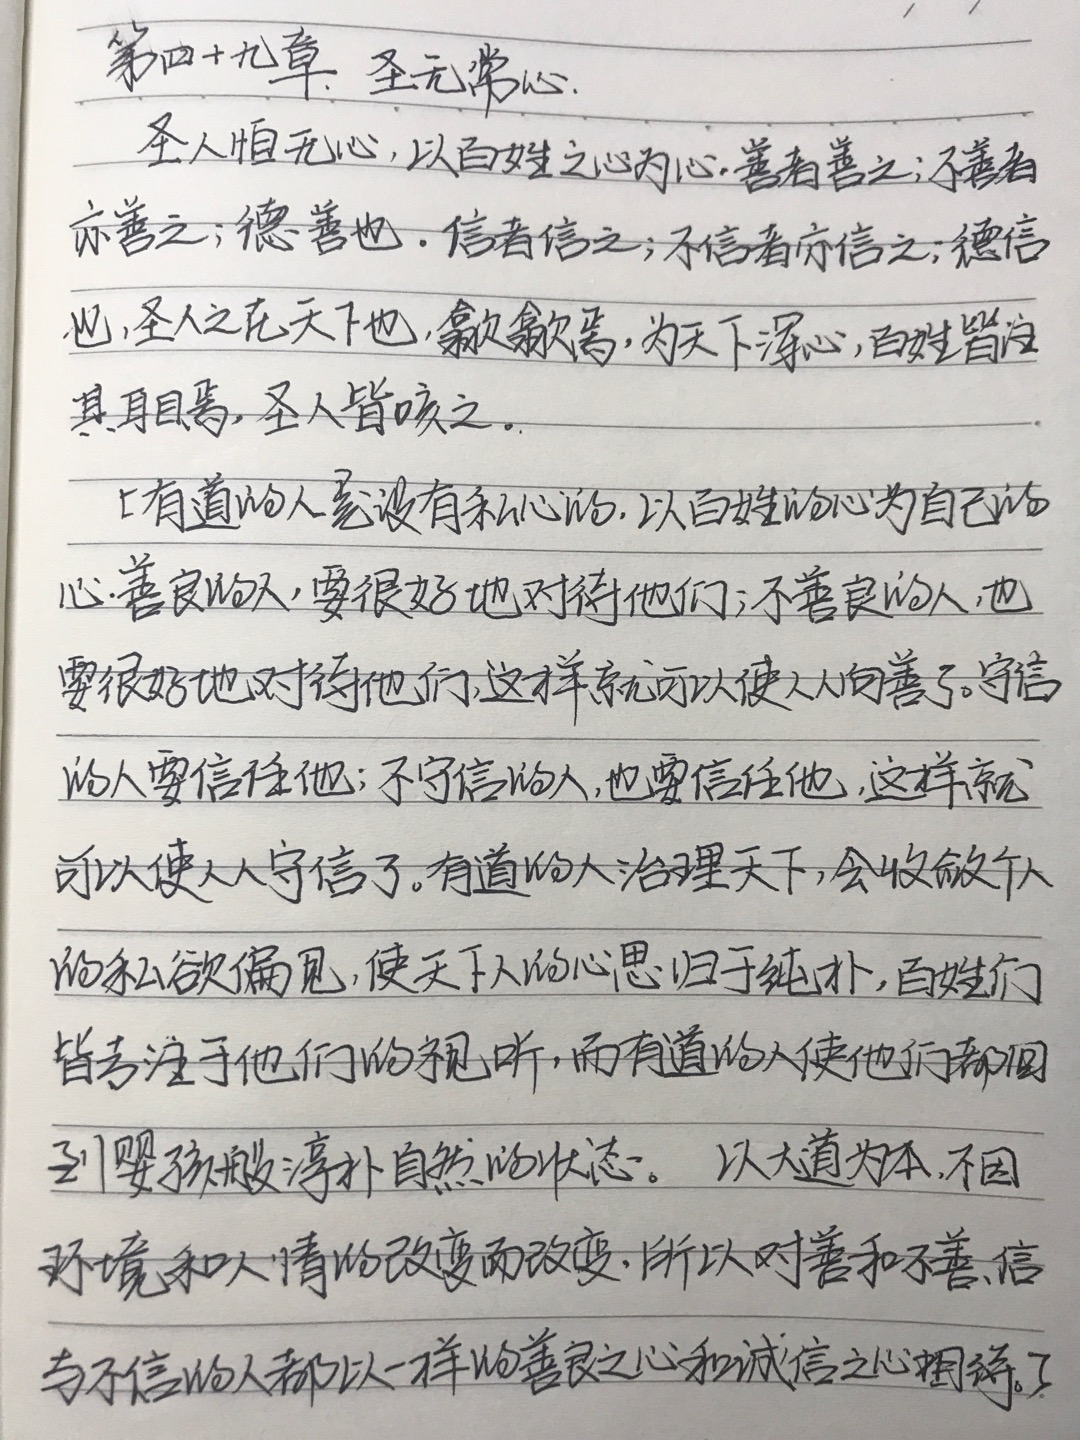 第四十九章. 圣无常心.
圣人恒无心，以百姓之心为心.善者善之；不善者
亦善之；德善也.信者信之；不信者亦信之；德信
也,圣人之在天下也,歙歙焉,为天下浑心,百姓皆注
其耳目焉,圣人皆咳之。
「有道的人是没有私心的.以百姓的心为自己的
心.善良的人,要很好地对待他们;不善良的人,也
要很好地对待他们,这样就可以使人人向善了。守信
的人要信任他;不守信的人,也要信任他,这样就
可以使人人守信了。有道的人治理天下,会收敛个人
的私欲偏见,使天下人的心思归于纯朴,百姓们
皆专注于他们的视听,而有道的人使他们都回
到婴孩般淳朴自然的状态。 以大道为本,不因
环境和人情的改变而改变.所以对善和不善、信
与不信的人都以一样的善良之心和诚信之心相待。」